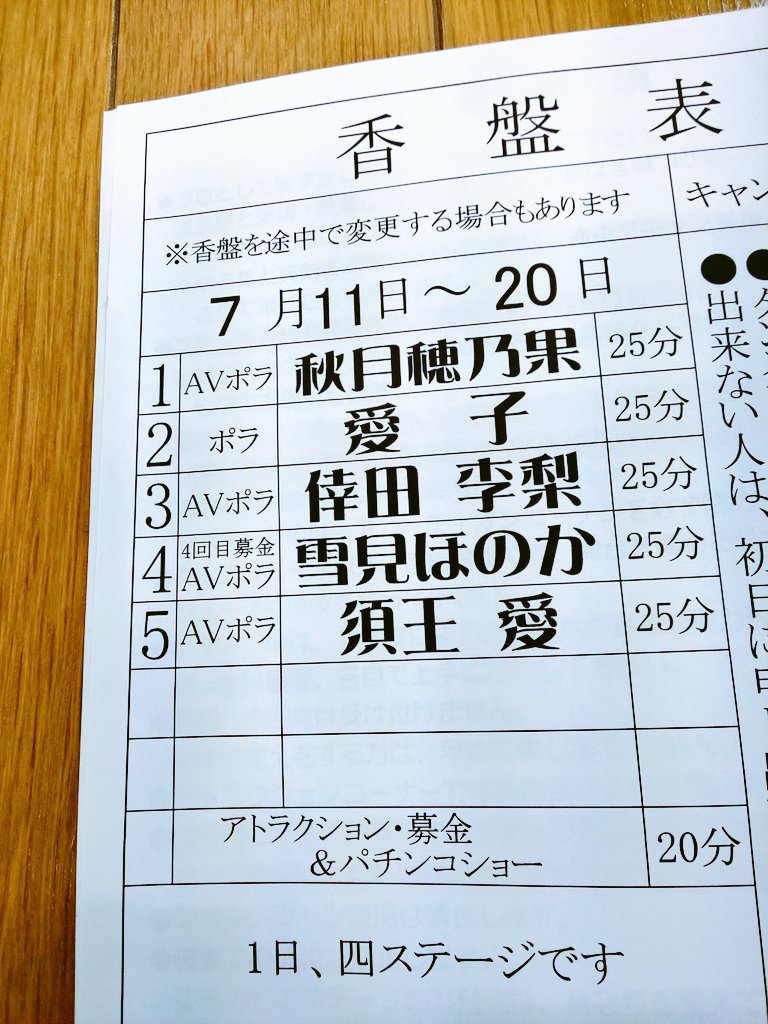 香盤表
※香盤を途中で変更する場合もあります
7月11日～20日
1 AVポラ 秋月穂乃果 25分
2 ポラ 愛子 25分
3 AVポラ 倖田 李梨 25分
4 4回目募金 AVポラ 雪見ほのか 25分
5 AVポラ 須王 愛 25分
アトラクション・募金
&パチンコショー 20分
1日、四ステージです
キャン
●
●出来ない人は、初日に